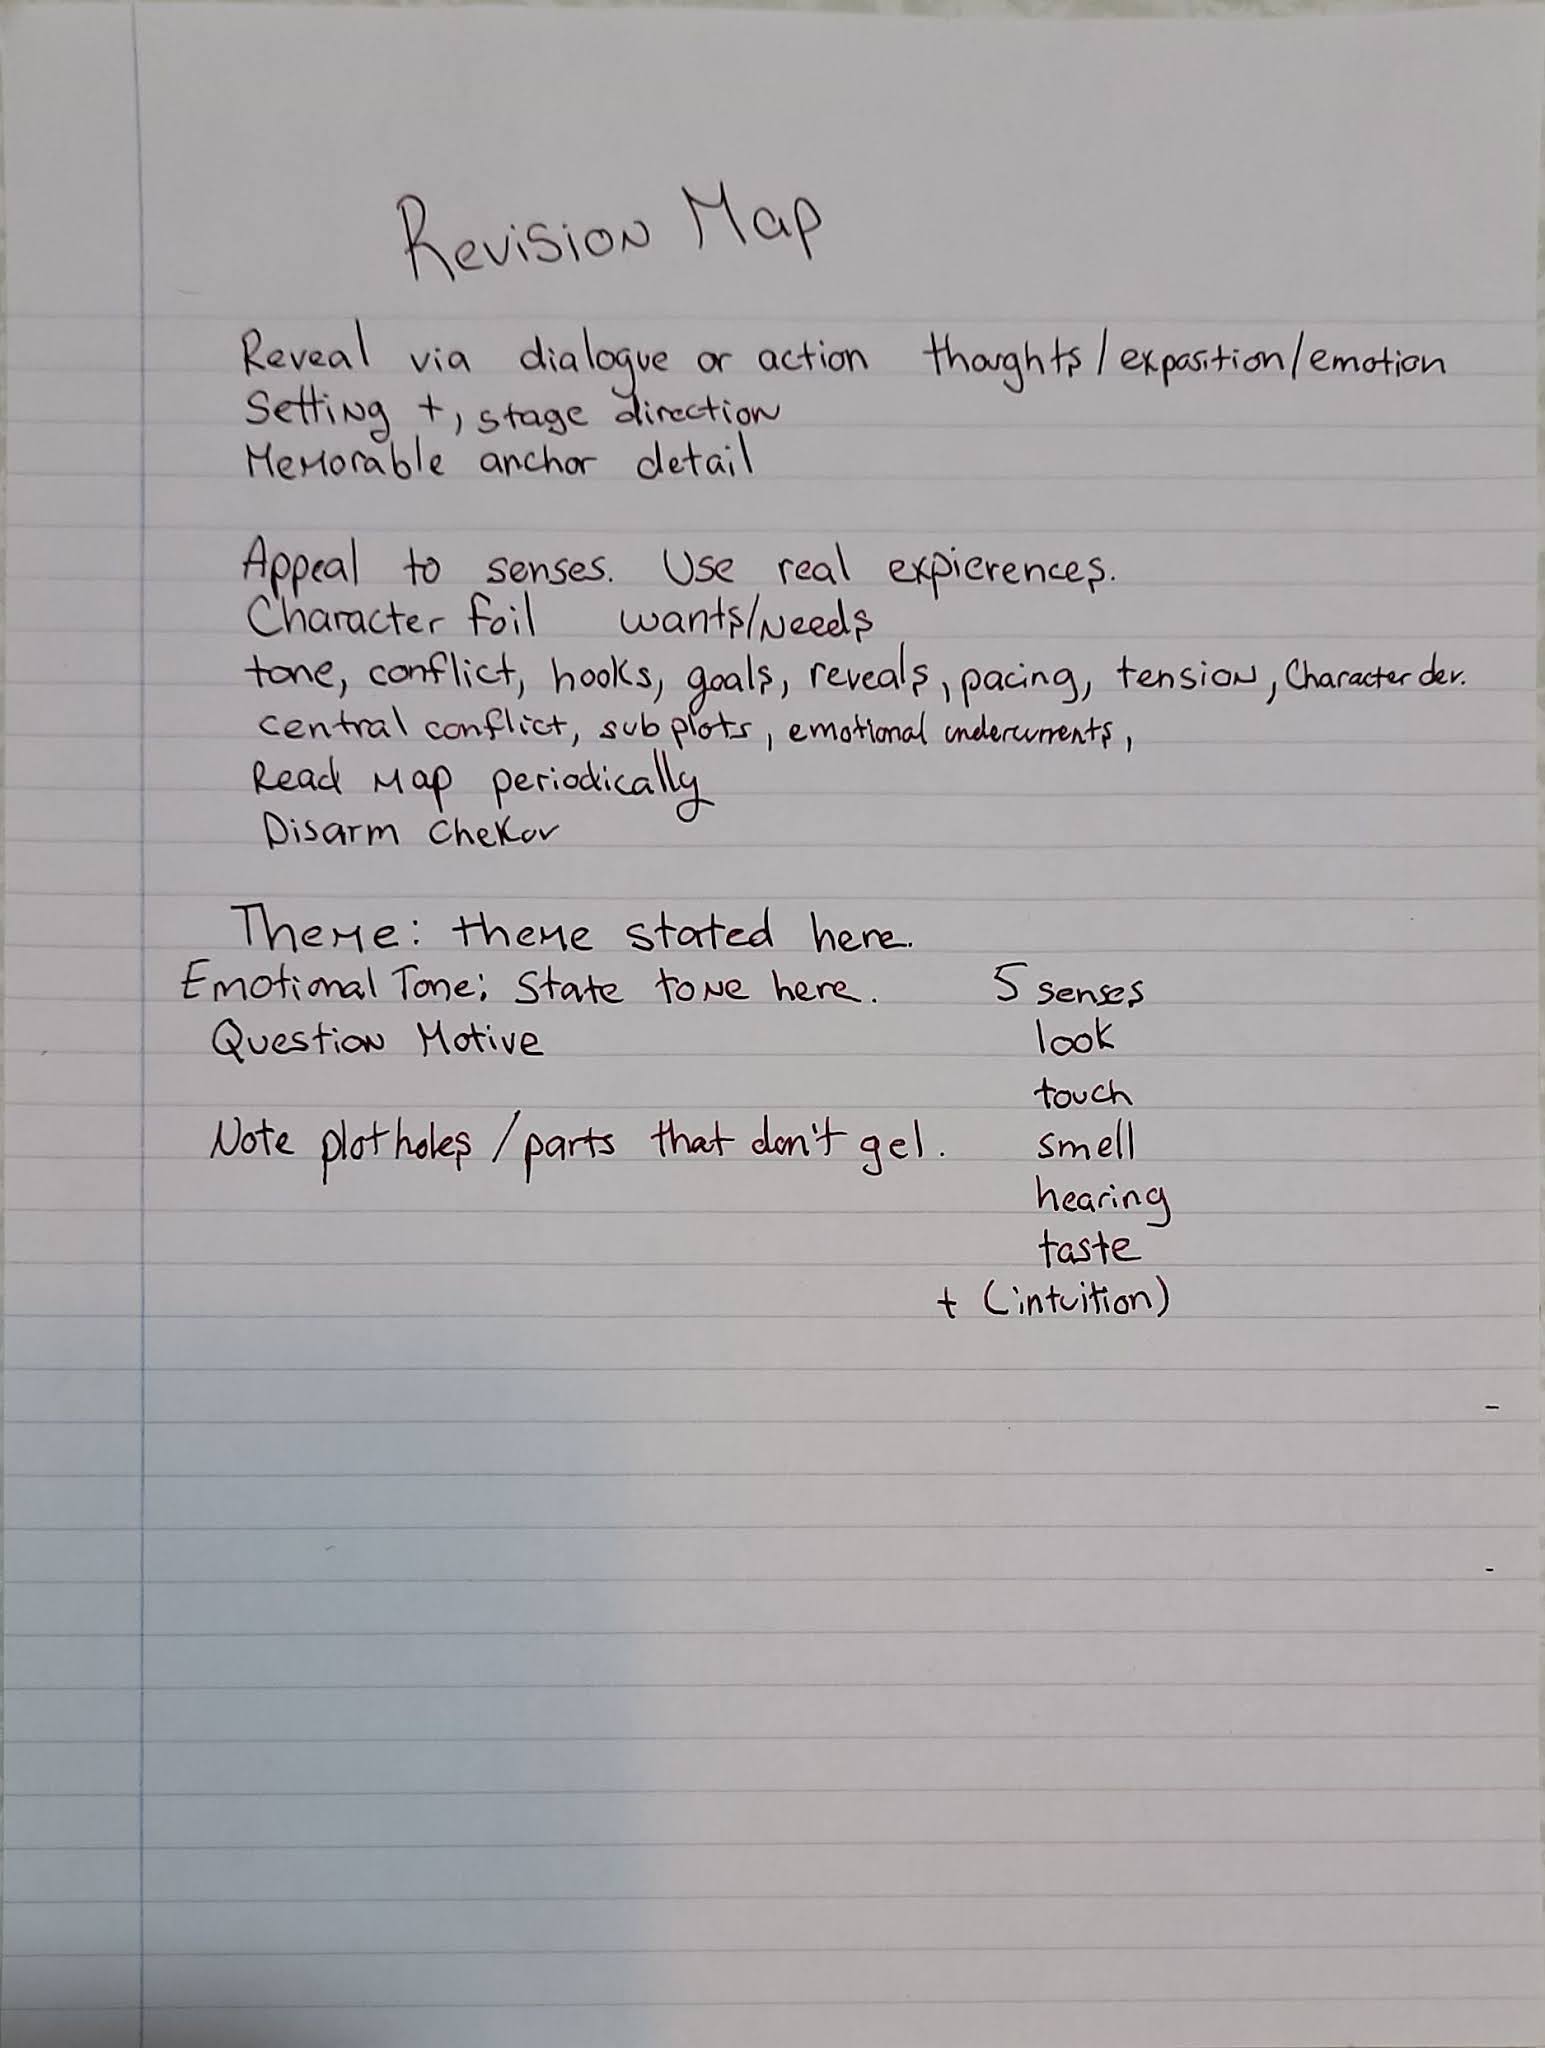 Revision Map
Reveal via dialogue or action thoughts/exposition/emotion
Setting +, stage direction
Memorable anchor detail
Appeal to senses. Use real expierences.
Character foil wants/needs
tone, conflict, hooks, goals, reveals, pacing, tension, Character dev.
central conflict, sub plots, emotional undercurrents,
Read Map periodically
Disarm Chekov
Theme: theme stated here.
Emotional Tone: State tone here.
Question Motive
Note plot holes/parts that don't gel.
5 senses
look
touch
smell
hearing
taste
+ (intuition)